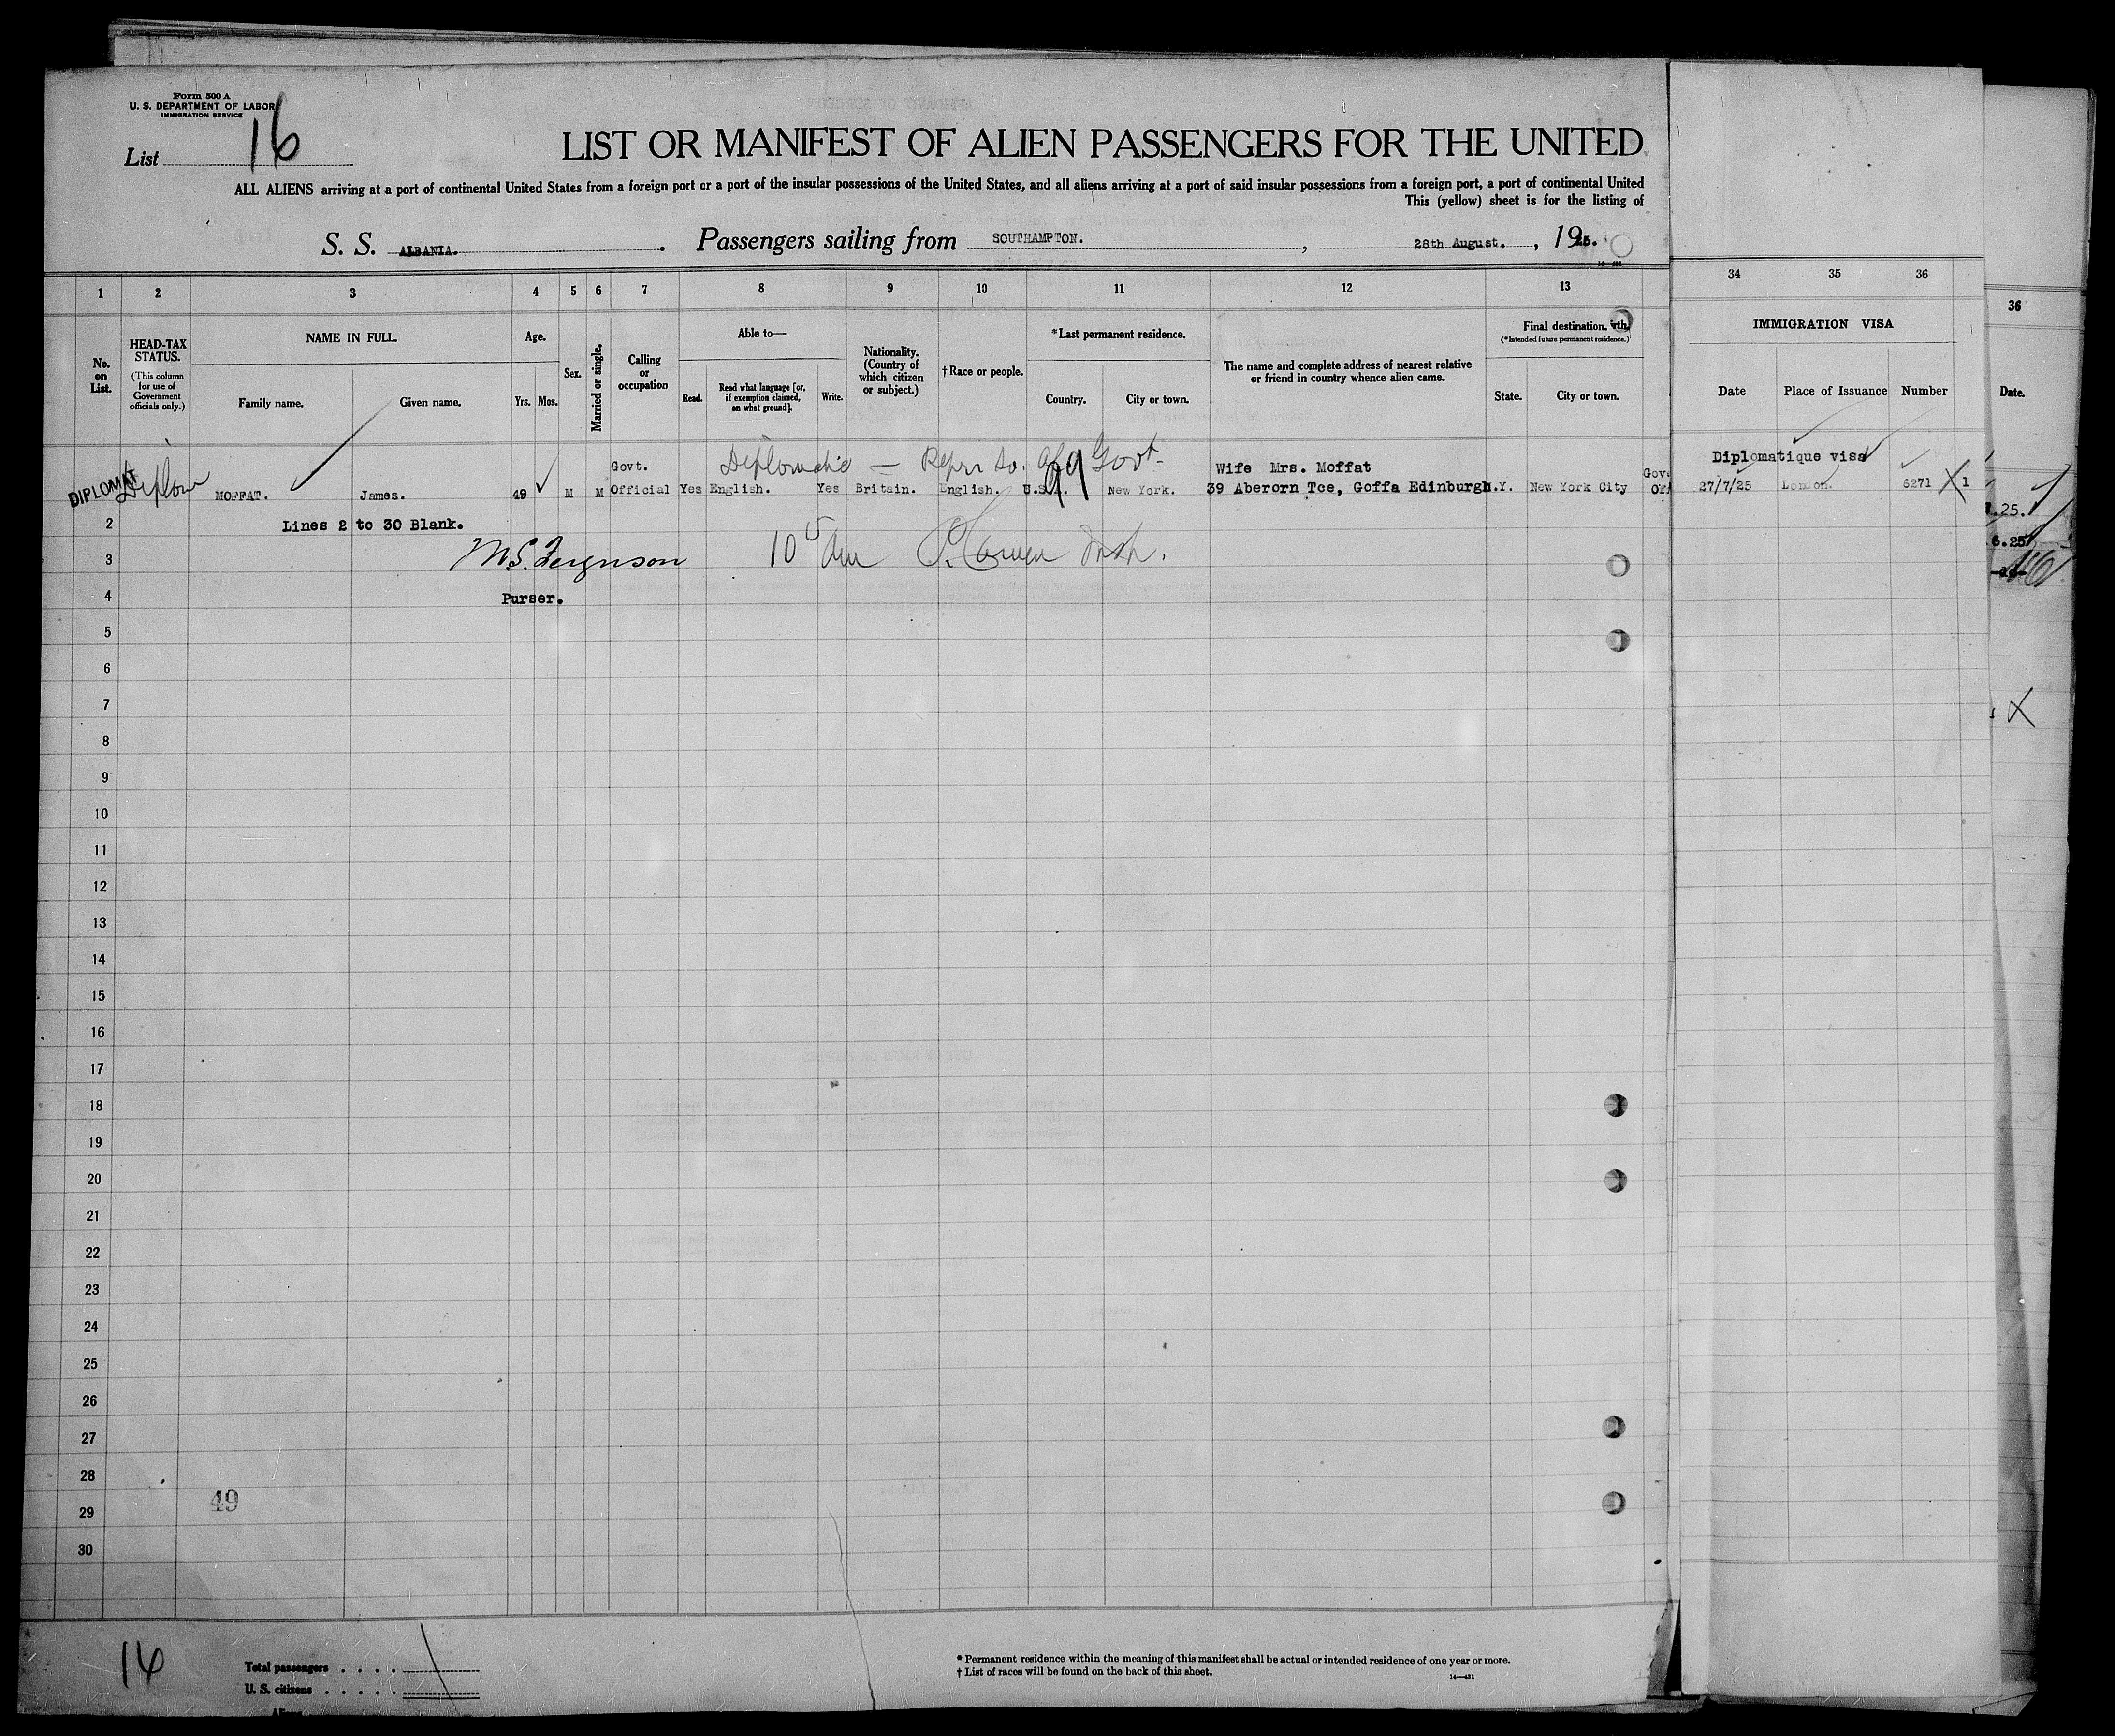 Form 500 A
U. S. DEPARTMENT OF LABOR
IMMIGRATION SERVICE
List 16
LIST OR MANIFEST OF ALIEN PASSENGERS FOR THE UNITED
ALL ALIENS arriving at a port of continental United States from a foreign port or a port of the insular possessions of the United States, and all aliens arriving at a port of said insular possessions from a foreign port, a port of continental United
This (yellow) sheet is for the listing of
S. S. ALBANIA. Passengers sailing from SOUTHAMPTON. , 28th August. , 1925.
1 2 3 4 5 6 7 8 9 10 11 12 13 34 35 36
36
No. on List.
HEAD-TAX STATUS.
(This column for use of Government officials only.)
NAME IN FULL.
Family name. Given name.
Age.
Yrs. Mos.
Sex.
Married or single.
Calling or occupation
Able to—
Read. Read what language [or, if exemption claimed, on what ground]. Write.
Nationality. (Country of which citizen or subject.)
†Race or people.
*Last permanent residence.
Country. City or town.
The name and complete address of nearest relative or friend in country whence alien came.
Final destination.
(*Intended future permanent residence.)
State. City or town.
IMMIGRATION VISA
Date Place of Issuance Number
Date.
Diplomatic — Govt. Wife Mrs. Moffat Diplomatique visa
DIPLOMAT MOFFAT. James. 49 M M Govt. Official Yes English. Yes Britain. English. U.S.A. New York. 39 Aberorn Tce, Goffa Edinburgh. N.Y. New York City 27/7/25 London. 6271 X 1
2 Lines 2 to 30 Blank.
3 M S. Ferguson
4 Purser.
5
6
7
8
9
10
11
12
13
14
15
16
17
18
19
20
21
22
23
24
25
26
27
28
49
29
30
16
Total passengers . . . .
U. S. citizens . . . . .
* Permanent residence within the meaning of this manifest shall be actual or intended residence of one year or more.
† List of races will be found on the back of this sheet.
14—431